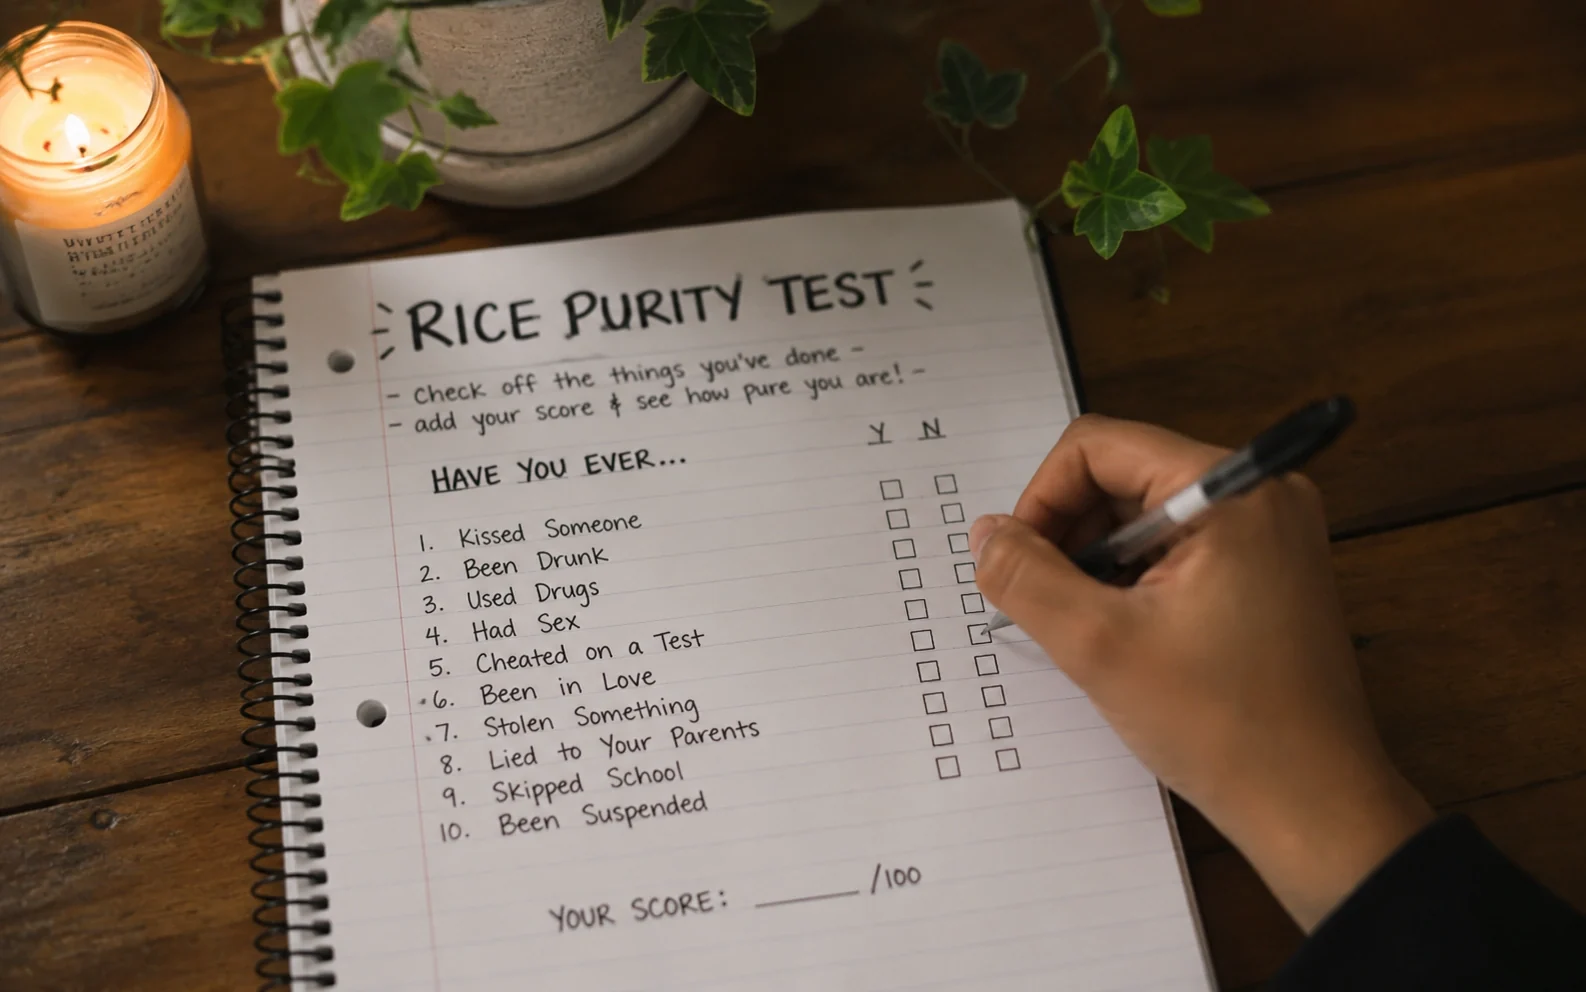 RICE PURITY TEST
- Check off the things you've done -
- add your score & see how pure you are! -
Y N
HAVE YOU EVER...
1. Kissed Someone
2. Been Drunk
3. Used Drugs
4. Had Sex
5. Cheated on a Test
6. Been in Love
7. Stolen Something
8. Lied to Your Parents
9. Skipped School
10. Been Suspended
YOUR SCORE: ______ /100